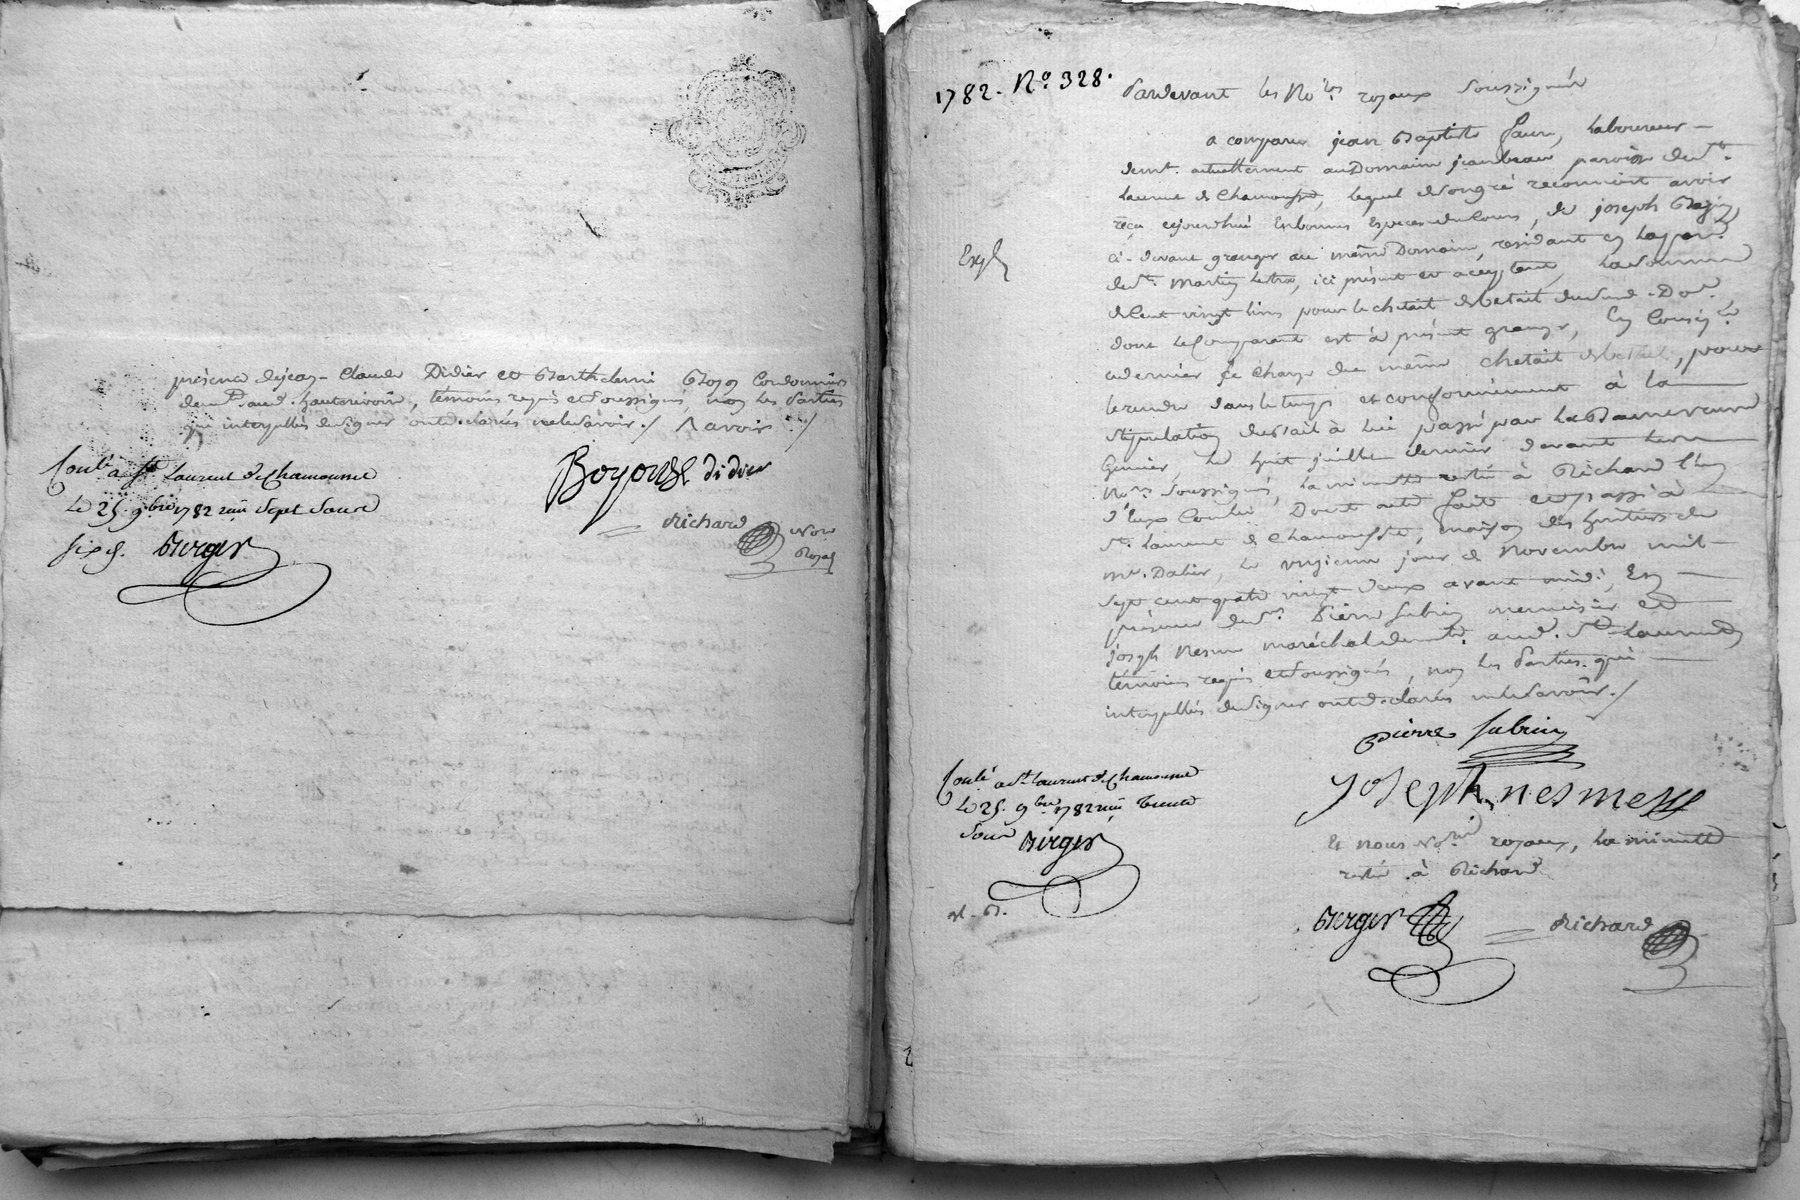 présence de jean-Claude Didier et Barthelemi Boyon Cordonniers
demts. aud. hauterivoire, témoins requis et soussignés, non les parties
qui interpellés de signer ont déclarés ne le savoir ./ savoir ./
Conlé a St Laurent de Chamousset
Le 25. 9bre 1782 reçu Sept Sous
six d. Berger
Boyond didier
Richard Nore
Royal
1782. No. 328.
Pardevant les Noires royaux soussignés
a comparu jean Baptiste faure, laboureur
demt. actuellement au Domaine jambeau paroisse de St.
Laurent de Chamousset, lequel de son gré reconnoit avoir
reçu cejourd'hui en bonnes Especes du Cours, de joseph
Expé
ci-devant granger au même Domaine, résidant en la par.
de St. Martin Lestra, ici présent et acceptant, la somme
de Cent vingt livres pour le chetait de betail dud. Do.
dont le Comparant est à présent granger, En Conséq.
ce dernier se charge du même chetait de betail, pour
le rendre dans le temps et conformément à la
stipulation du bail à lui passé par la Dame veuve
le huit juillet dernier devant les
Nores. soussignés, la minutte restée à Richard l'un
d'eux Conlé. Dont acte fait et passé à
St. Laurent de Chamousset, maison des héritiers de
me. Dalier, le vingtieme jour de Novembre mil
sept cent quatre vingt deux avant midi, En
présence de Sr. Pierre Subrin menuisier et
joseph Nesme maréchal demts. aud. St. Laurent
témoins requis et soussignés, non les parties qui
interpellés de signer ont déclarés ne le savoir ./
pierre subrin
Joseph nesmesse
Conlé a St Laurent de Chamousset
Le 25. 9bre 1782 reçu trente
Sous Berger
Et nous Nores royaux, la minutte
restée à Richard
Berger Richard